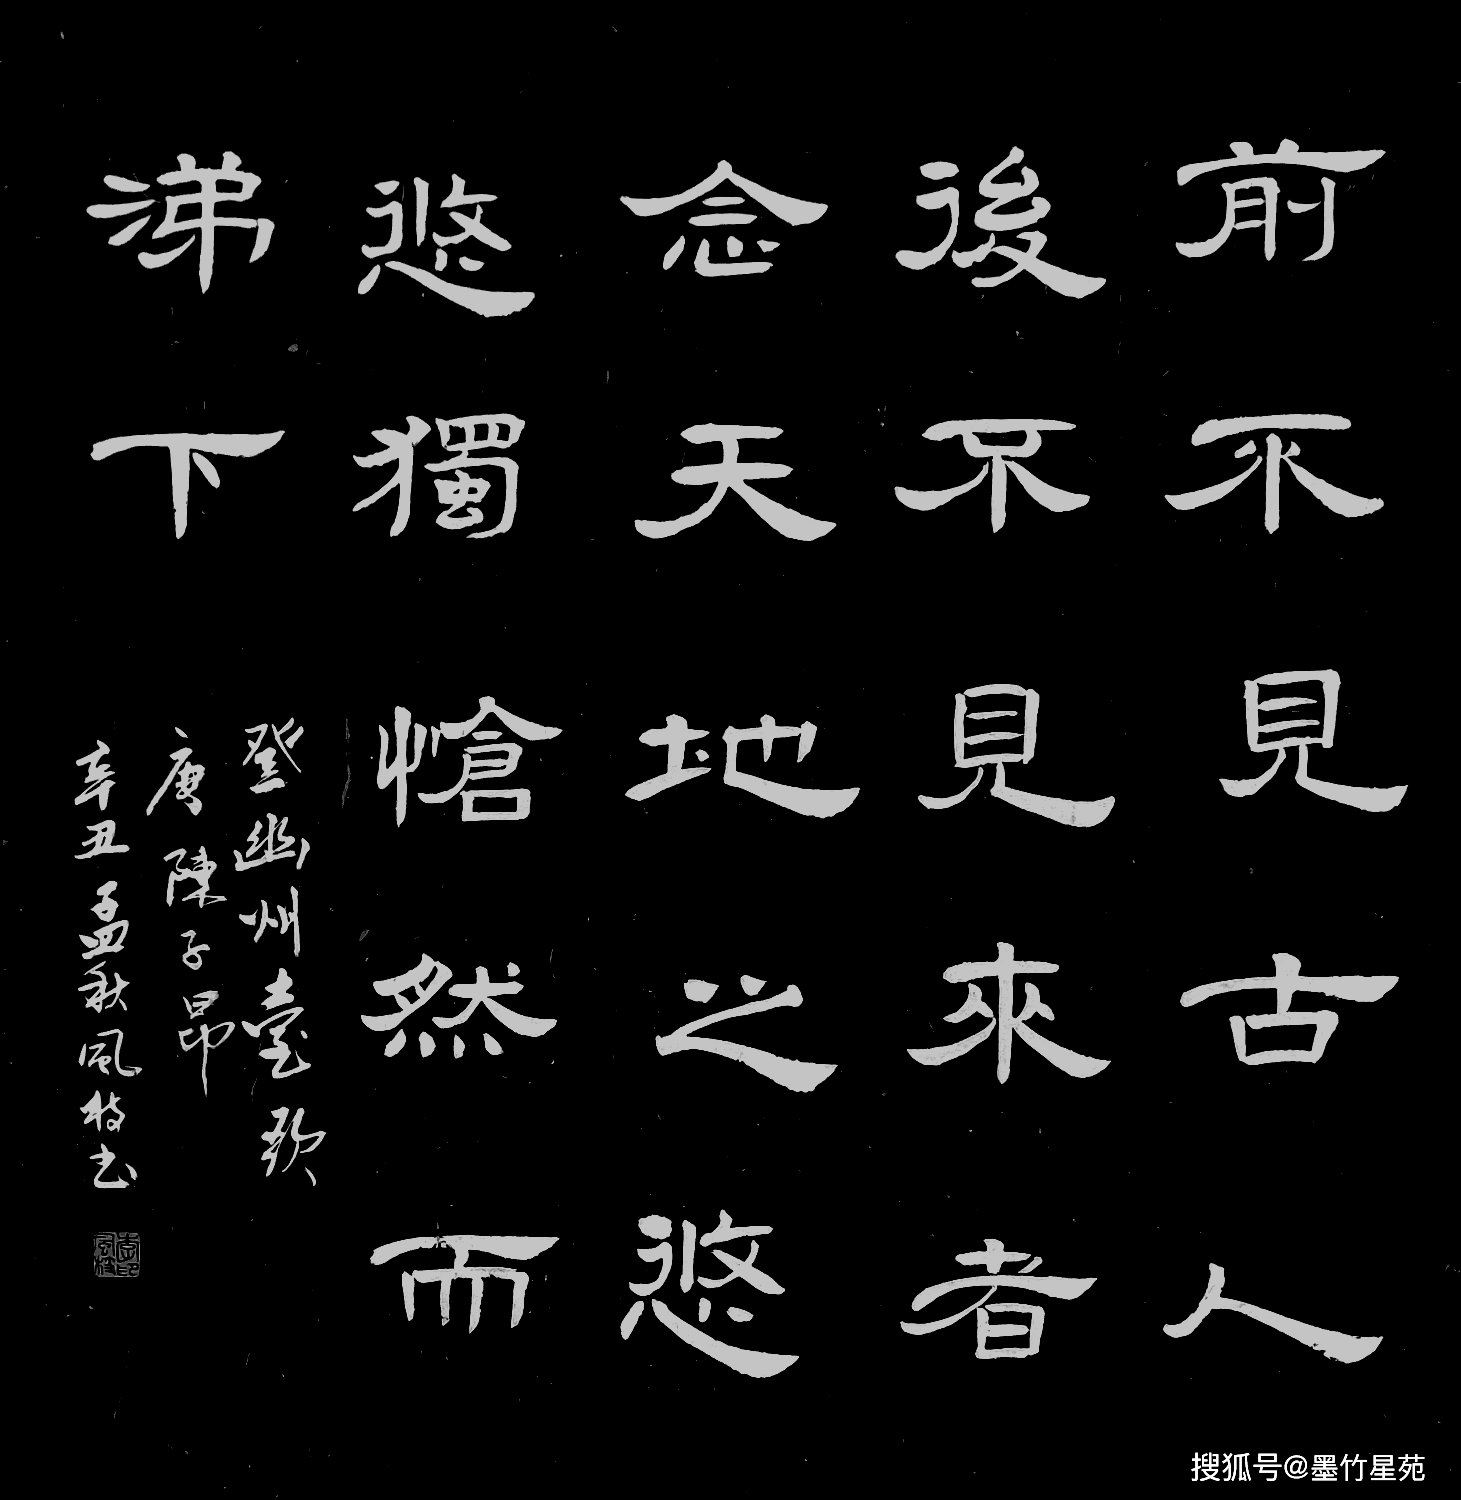 前不見古人
後不見來者
念天地之悠
悠獨愴然而
涕下
登幽州臺歌
唐陳子昂
辛丑孟秋風枝书
搜狐号@墨竹星苑